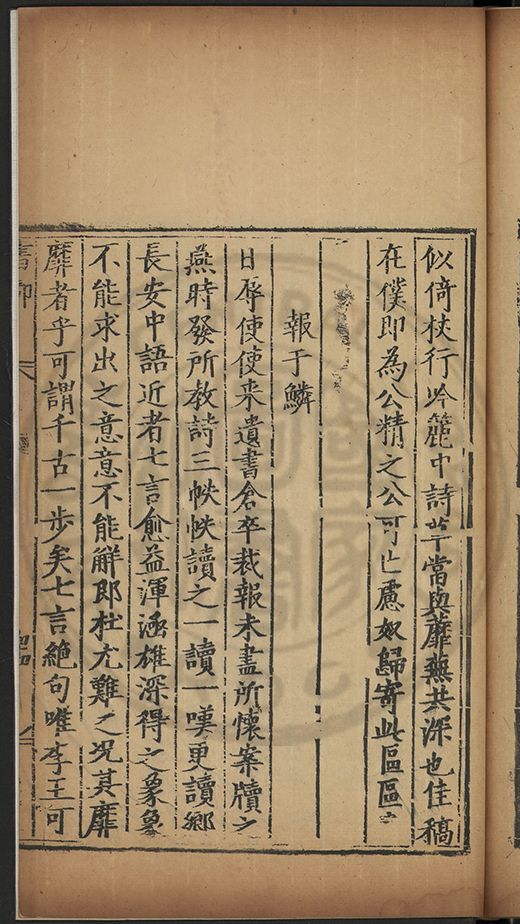 似倚杖行吟籠中詩草當與蘼蕪共深也佳稿
在僕即為公精之公可亡慮奴歸寄此區區
報于鱗
日辱使使来遺書倉卒裁報未盡所懷案牘之
燕時發所教詩三帙帙讀之一讀一嘆更讀鄉
長安中語近者七言愈益渾涵雄深得之象象
不能求出之意意不能解即杜尤難之况其靡
靡者乎可謂千古一步矣七言絕句唯李王可